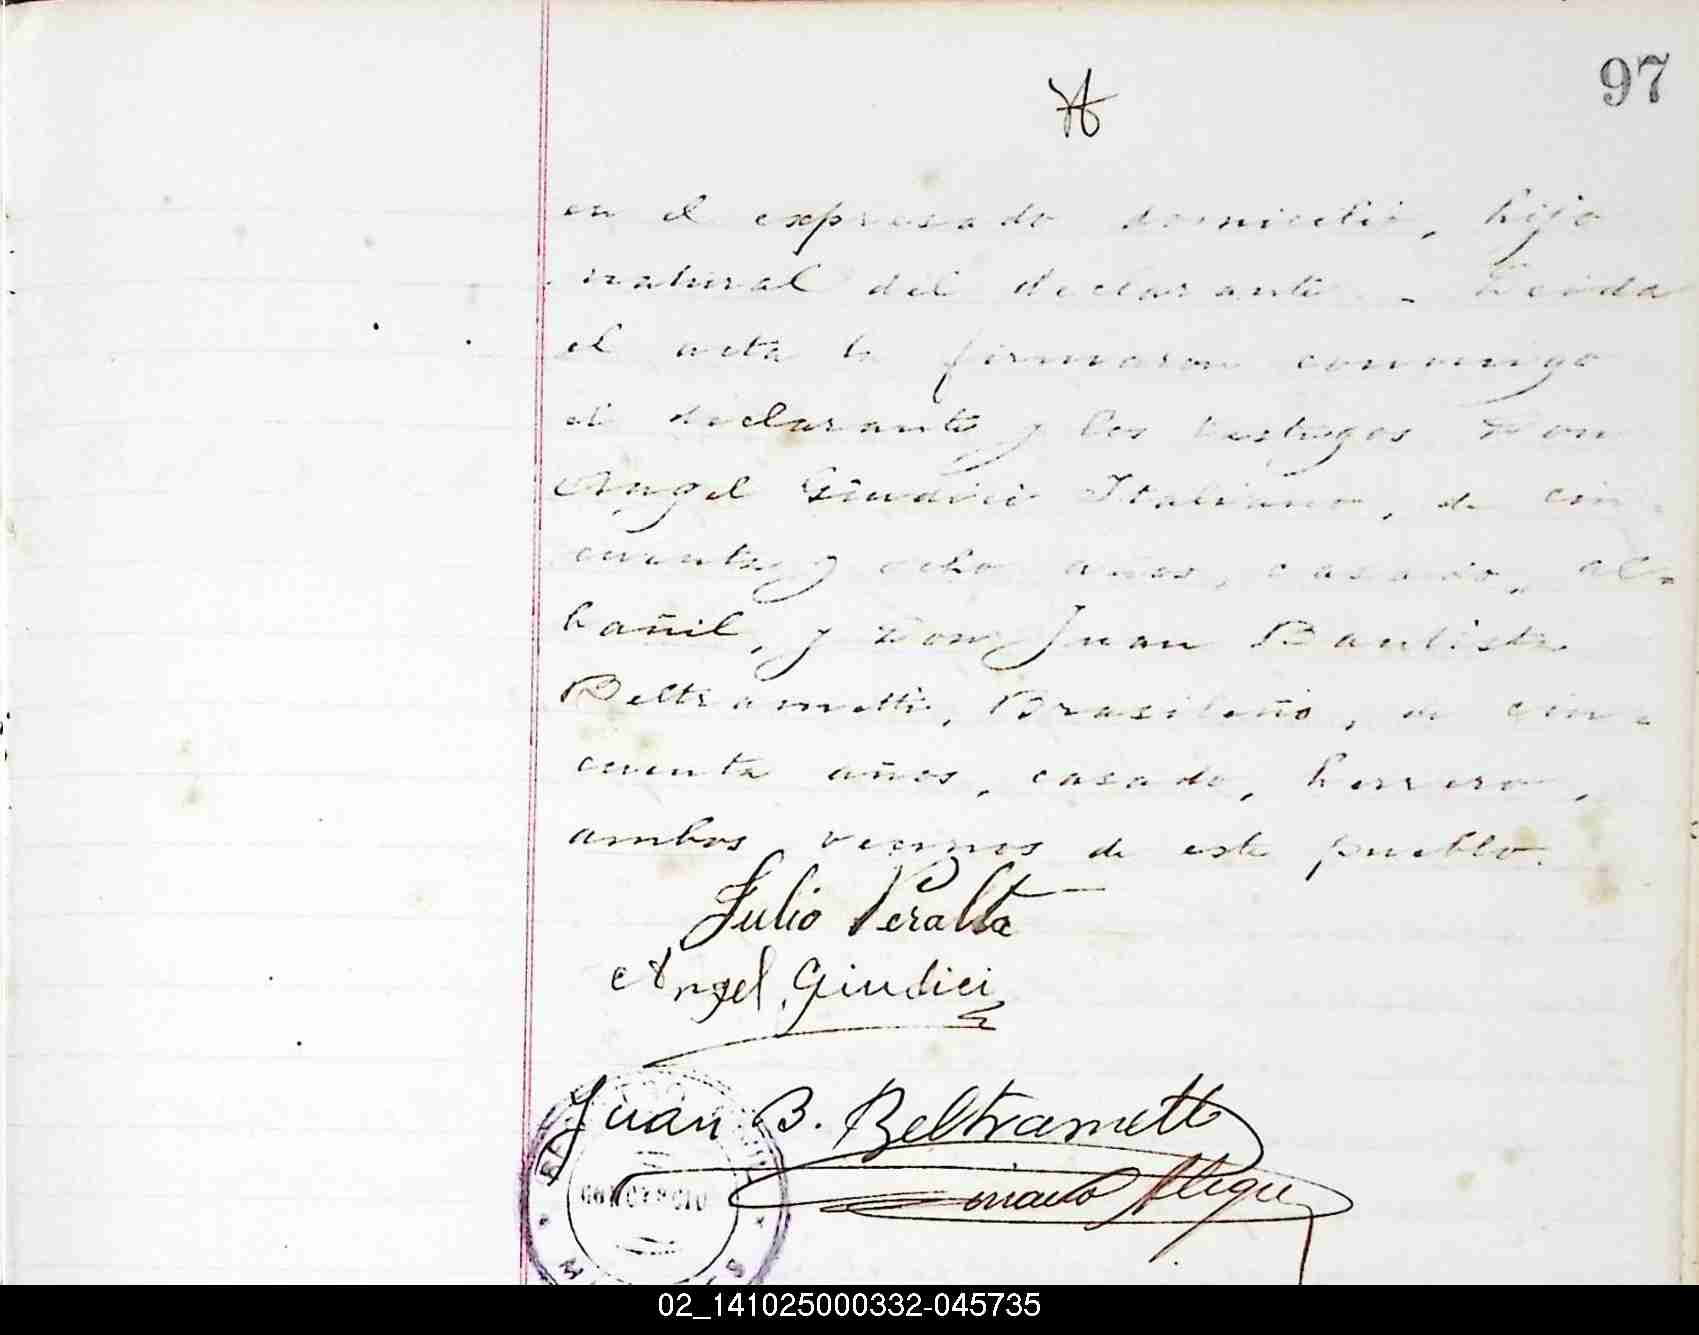 97
en el expresado domicilio, hijo
natural del declarante. - Leida
el acta la firmaron conmigo
el declarante y los testigos Don
Angel Giudici Italiano, de cin-
cuenta y ocho años, casado, al-
bañil, y Don Juan Bautista
Beltrametti, Brasileño, de cin-
cuenta años, casado, herrero,
ambos vecinos de este pueblo.
Julio Peralta
Angel Giudici
Juan B. Beltrametti
02_141025000332-045735